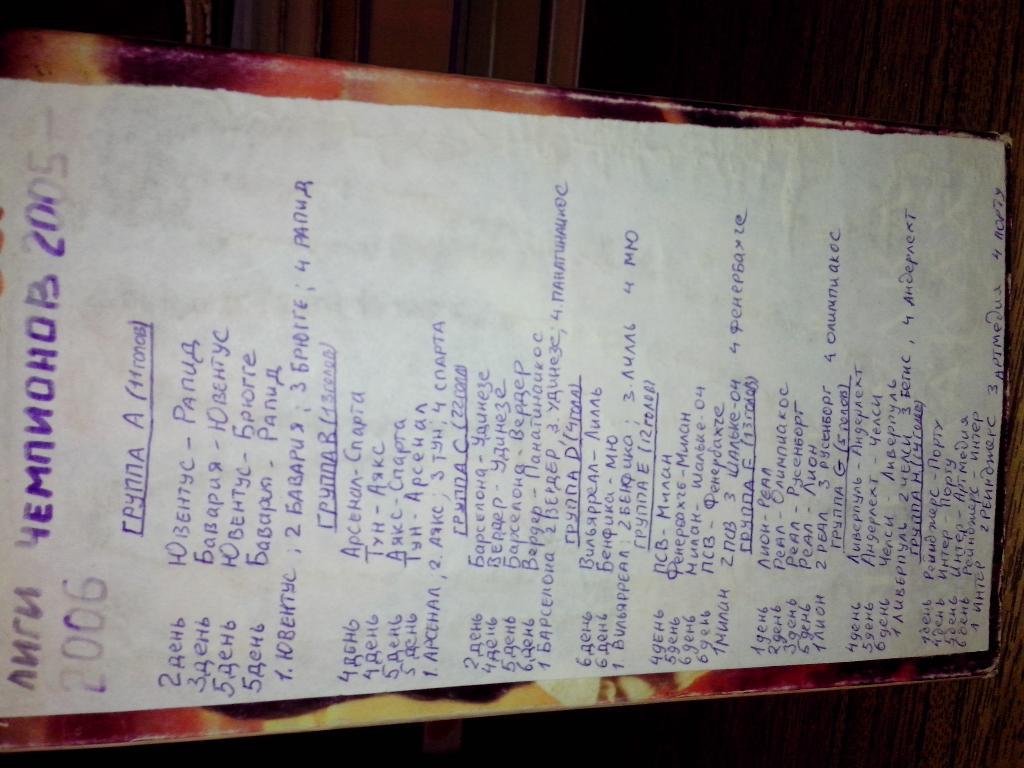 ЛИГИ ЧЕМПИОНОВ 2005-
2006
ГРУППА А (11 голов)
2 день Ювентус - Рапид
3 день Бавария - Ювентус
5 день Ювентус - Брюгге
5 день Бавария - Рапид
1. ЮВЕНТУС; 2 БАВАРИЯ; 3 БРЮГГЕ; 4 РАПИД
ГРУППА В (13 голов)
4 день Арсенал - Спарта
4 день Тун - Аякс
5 день Аякс - Спарта
5 день Тун - Арсенал
1. АРСЕНАЛ, 2. АЯКС, 3 ТУН; 4 СПАРТА
ГРУППА С (22 гола)
2 день Барселона - Удинезе
4 день Вердер - Удинезе
5 день Барселона - Вердер
6 день Вердер - Панатинаикос
1 БАРСЕЛОНА 2 ВЕРДЕР, 3. УДИНЕЗЕ; 4. ПАНАТИНАИКОС
ГРУППА D (4 гола)
6 день Вильярреал - Лилль
6 день Бенфика - МЮ
1. ВИЛЬЯРРЕАЛ; 2 БЕНФИКА; 3. ЛИЛЛЬ 4 МЮ
ГРУППА Е (12 голов)
4 день ПСВ - Милан
5 день Фенербахче - Милан
6 день Милан - Шальке-04
6 день ПСВ - Фенербахче
1 МИЛАН 2 ПСВ 3 Шальке-04 4 ФЕНЕРБАХЧЕ
ГРУППА F (13 голов)
1 день ЛИОН - РЕАЛ
2 день РЕАЛ - ОЛИМПИАКОС
3 день РЕАЛ - РУСЕНБОРГ
5 день РЕАЛ - ЛИОН
1 ЛИОН 2 РЕАЛ 3 РУСЕНБОРГ 4 ОЛИМПИАКОС
ГРУППА G (5 голов)
4 день Ливерпуль - Андерлехт
5 день Андерлехт - Челси
6 день Челси - Ливерпуль
1 ЛИВЕРПУЛЬ 2 ЧЕЛСИ 3 БЕТИС, 4 АНДЕРЛЕХТ
ГРУППА Н (14 голов)
1 день Рейнджерс Порту
4 день Интер Порту
5 день Интер - Артмедия
6 день Рейнджерс - Интер
1 ИНТЕР 2 РЕЙНДЖЕРС 3 АРТМЕДИЯ 4 ПОРТУ